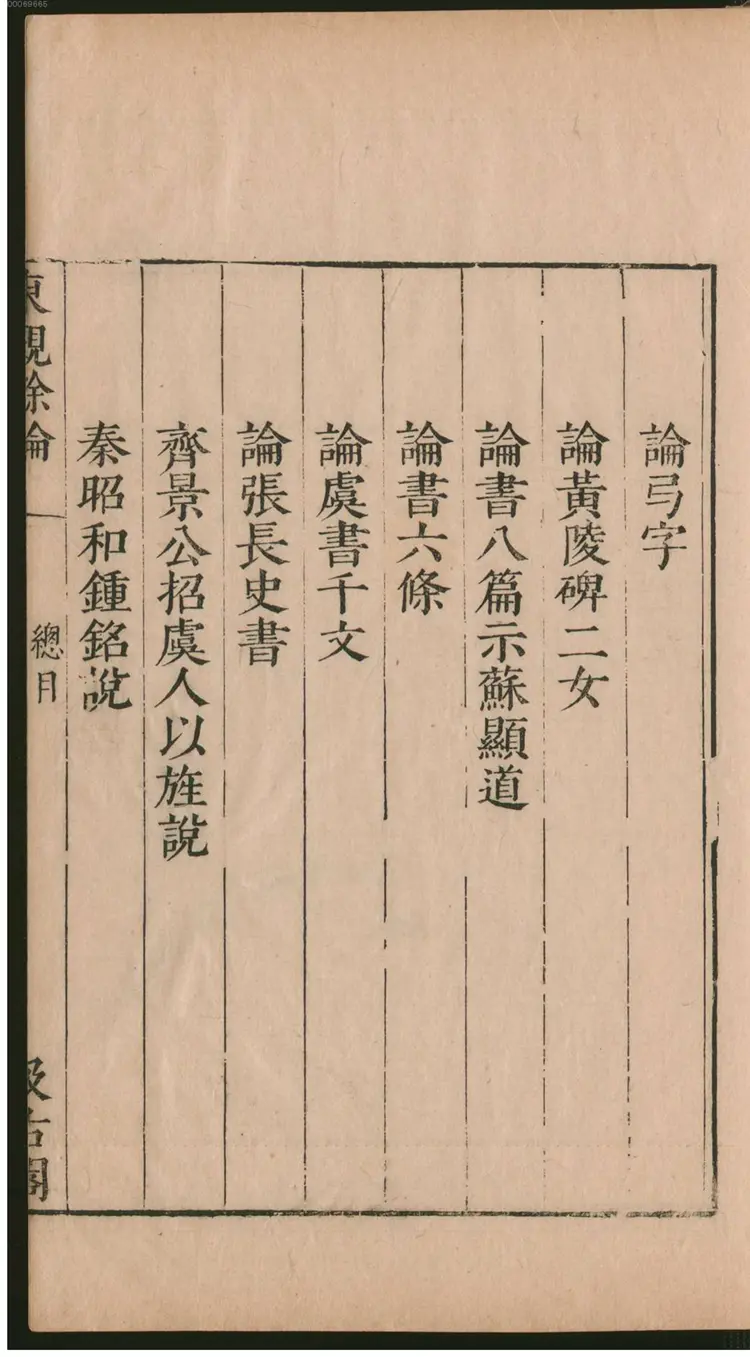 論弓字
論黃陵碑二女
論書八篇示蘇顯道
論書六條
論虞書千文
論張長史書
齊景公招虞人以旌說
秦昭和鍾銘說
東觀餘論
總目
汲古閣
00069665